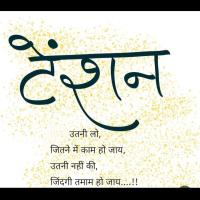 टेंशन
उतनी लो,
जितने में काम हो जाय,
उतनी नहीं की,
जिंदगी तमाम हो जाय....!!